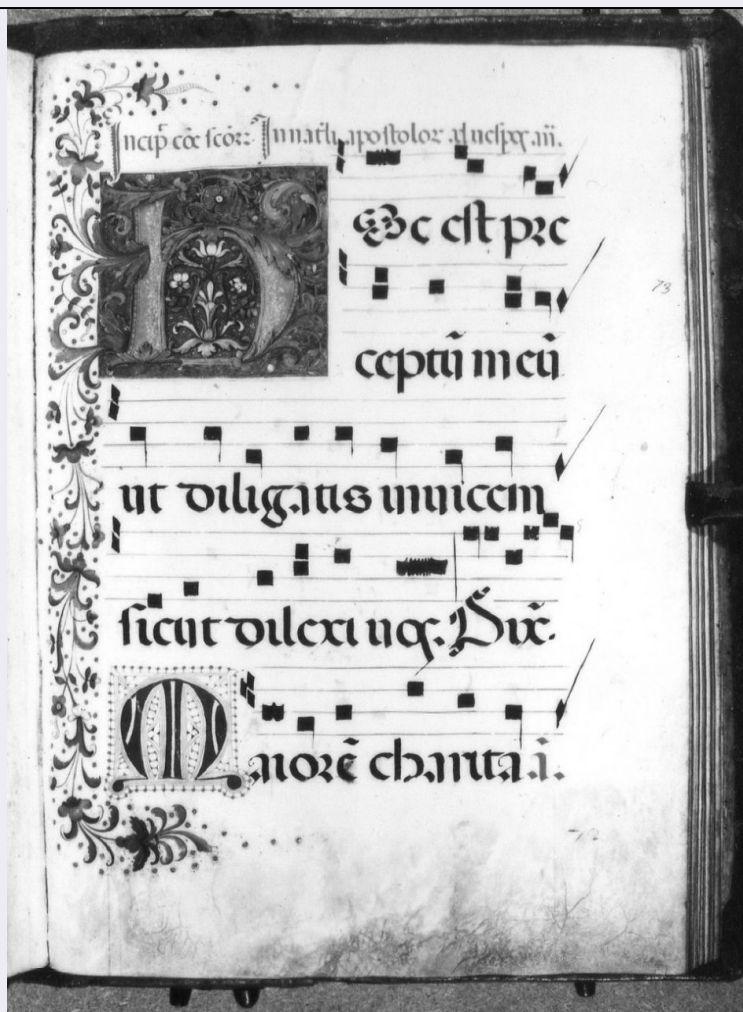 Incip̄ cōe scōr: In nat̄li apostolor ad uesp̱ an̄.
Hec est pre
ceptū meū
ut diligatis inuicem
sicut dilexi uos. Dix̄.
Maiorē charita. ā.
73